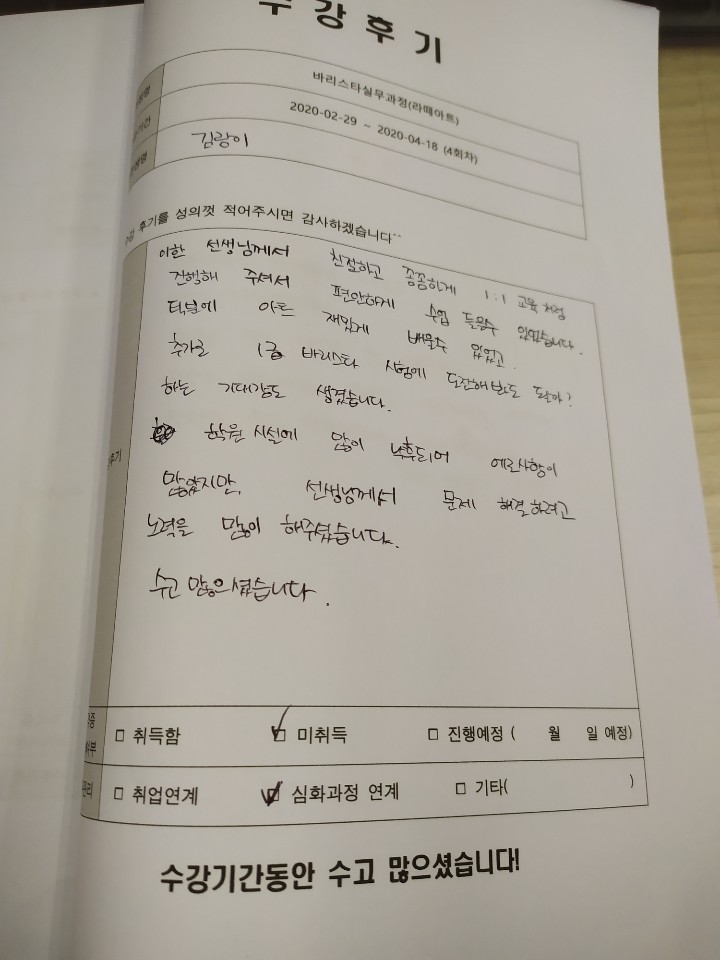 수강후기
바리스타실무과정(라떼아트)
2020-02-29 ~ 2020-04-18 (4회차)
김랑이
후기를 성의껏 적어주시면 감사하겠습니다^^
이한 선생님께서 친절하고 꼼꼼하게 1:1 교육처럼
진행해 주셔서 편안하게 수업 들을수 있었습니다.
덕분에 아트 재밌게 배울수 있었고.
추가로 1급 바리스타 시험에 도전해봐도 될까?
하는 기대감도 생겼습니다.
학원 시설에 많이 낙후되어 애로사항이
많았지만, 선생님께서 문제 해결하려고
노력을 많이 해주셨습니다.
수고 많으셨습니다.
후기
□ 취득함 □ 미취득 □ 진행예정 ( 월 일 예정)
□ 취업연계 □ 심화과정 연계 □ 기타( )
수강기간동안 수고 많으셨습니다!